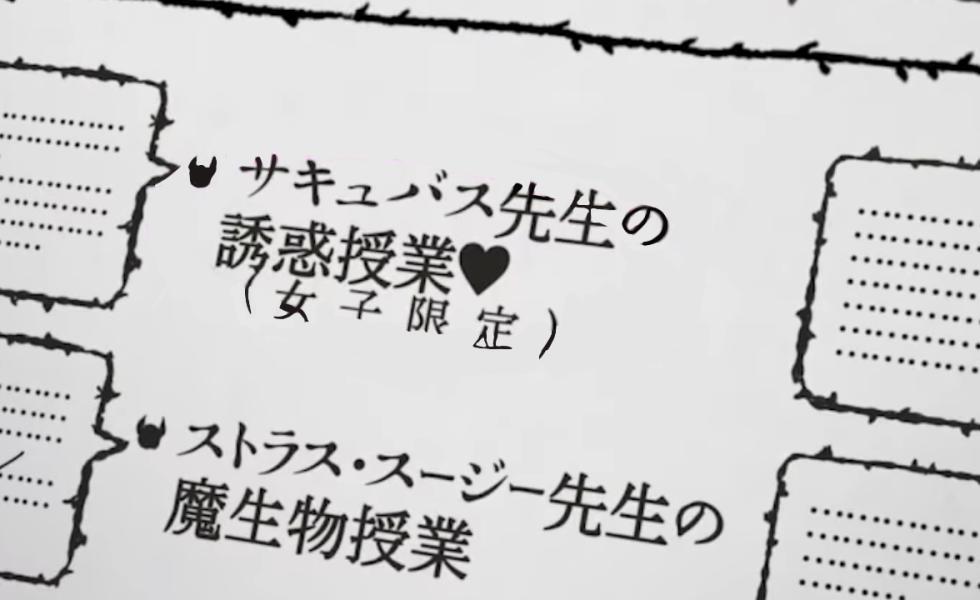 サキュバス先生の
誘惑授業♥
(女子限定)
ストラス・スージー先生の
魔生物授業